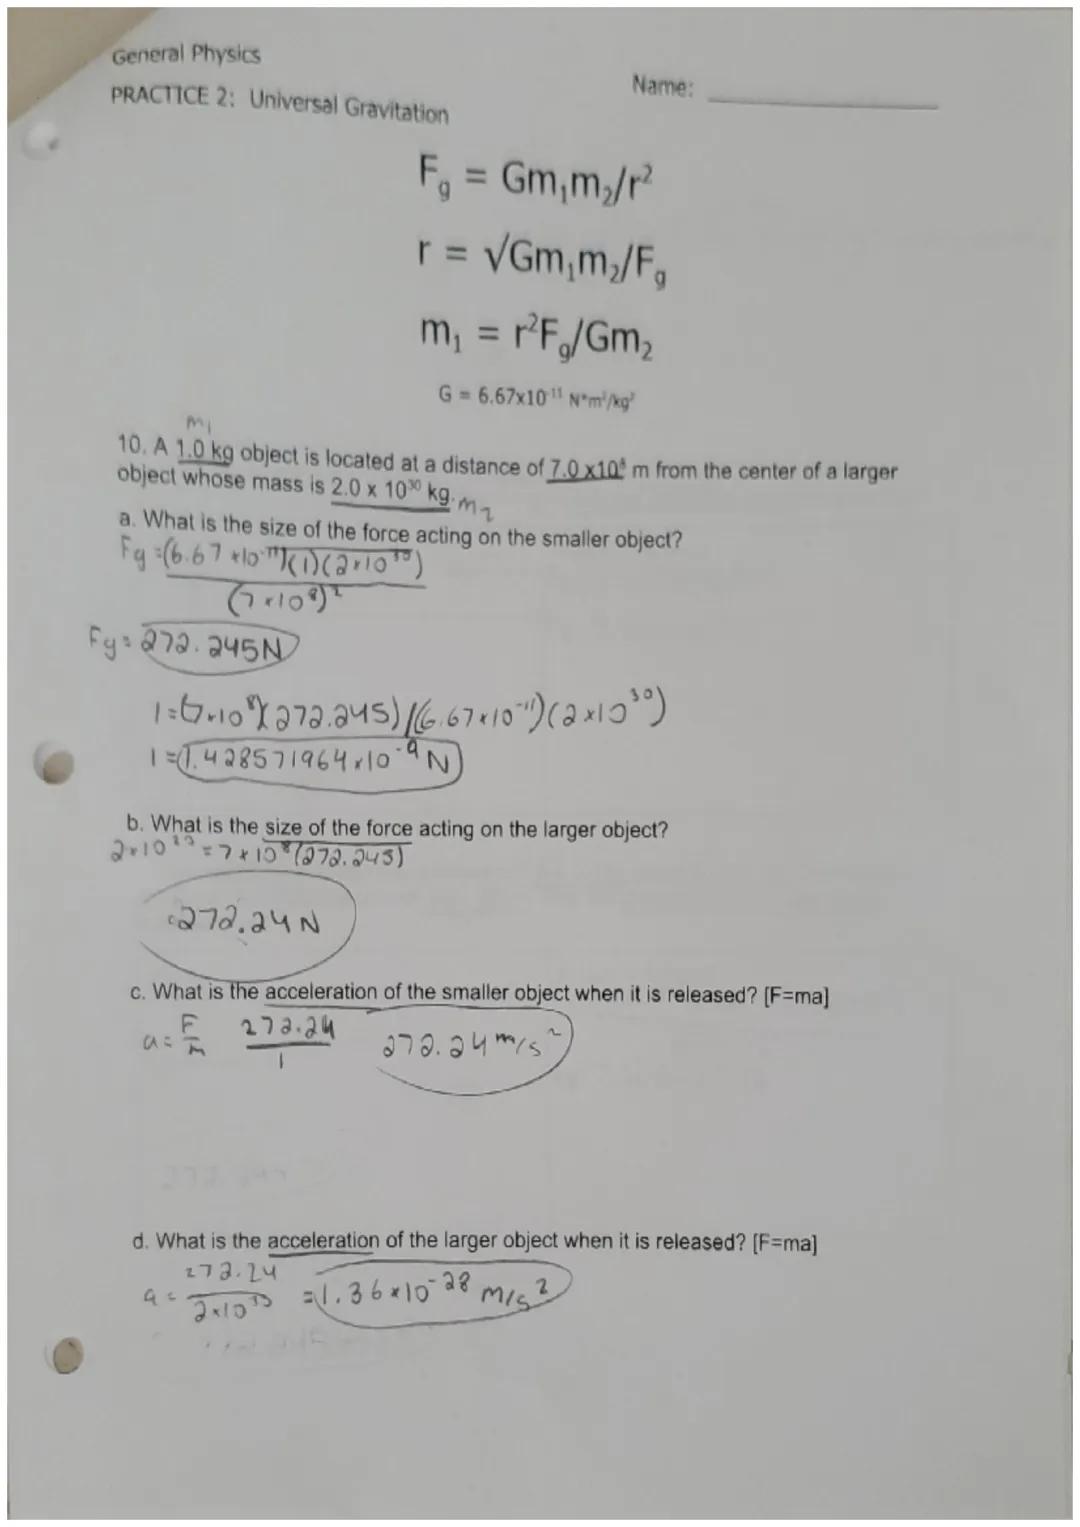 General Physics
Name: ____________
PRACTICE 2: Universal Gravitation
F_g = Gm₁m₂/r²
r = √Gm₁m₂/F_g
m₁ = r²F_g/Gm₂
G = 6.67x10⁻¹¹ N*m²/kg²
m₁
10. A 1.0 kg object is located at a distance of 7.0 x10⁸ m from the center of a larger
object whose mass is 2.0 x 10³⁰ kg. m₂
a. What is the size of the force acting on the smaller object?
Fg = (6.67 x10⁻¹¹)(1)(2x10³⁰)
(7x10⁸)²
Fg = 272.245N
1=(7x10⁸)(272.245)/(6.67x10⁻¹¹)(2x10³⁰)
1=1.428571964x10⁻⁹N
b. What is the size of the force acting on the larger object?
=7x10⁸(272.245)
272.24 N
c. What is the acceleration of the smaller object when it is released? [F=ma]
a = F/m 272.24/1 272.24 m/s²
d. What is the acceleration of the larger object when it is released? [F=ma]
272.24
a = =1.36x10⁻²⁸ m/s²